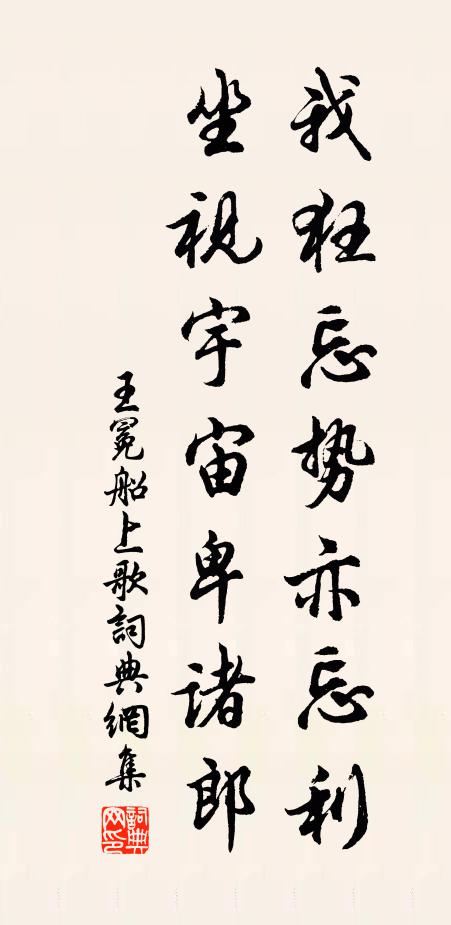 我狂忘势亦忘利
坐視宇宙卑诸郎
王冕船上歌詞典網集
詞典网印